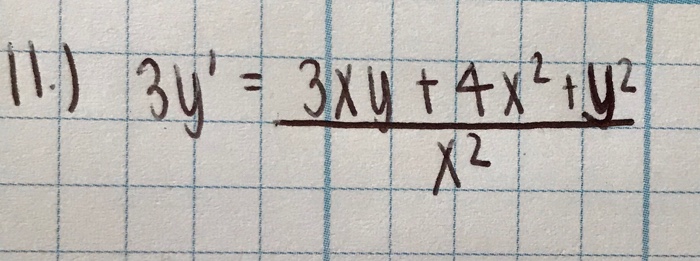 11.) 3y' = 3xy + 4x² + y²
x²